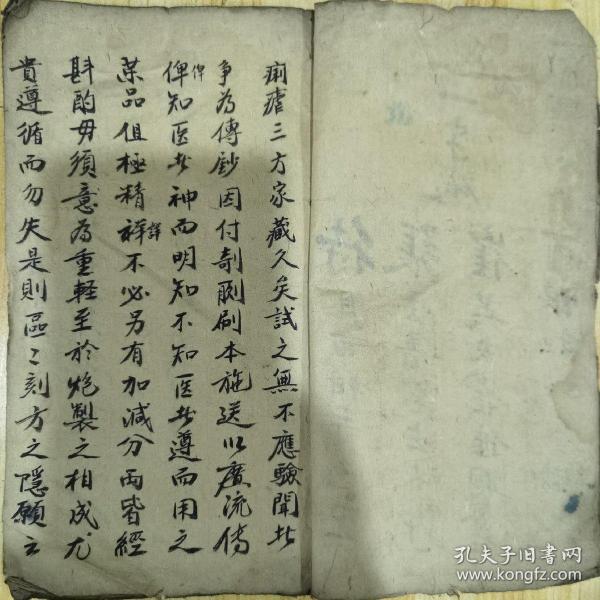 痢瘧三方家藏久矣試之無不應驗聞者
爭為傳鈔因付剞劂刷本施送以廣流傳
俾知医者神而明知不知医者遵而用之
藥品但極精祥詳不必另有加減分两皆經
斟酌毋須意為重輕至於炮製之相成尤
貴遵循而勿失是則區〻刻方之隱願云
孔夫子旧书网
www.kongfz.com